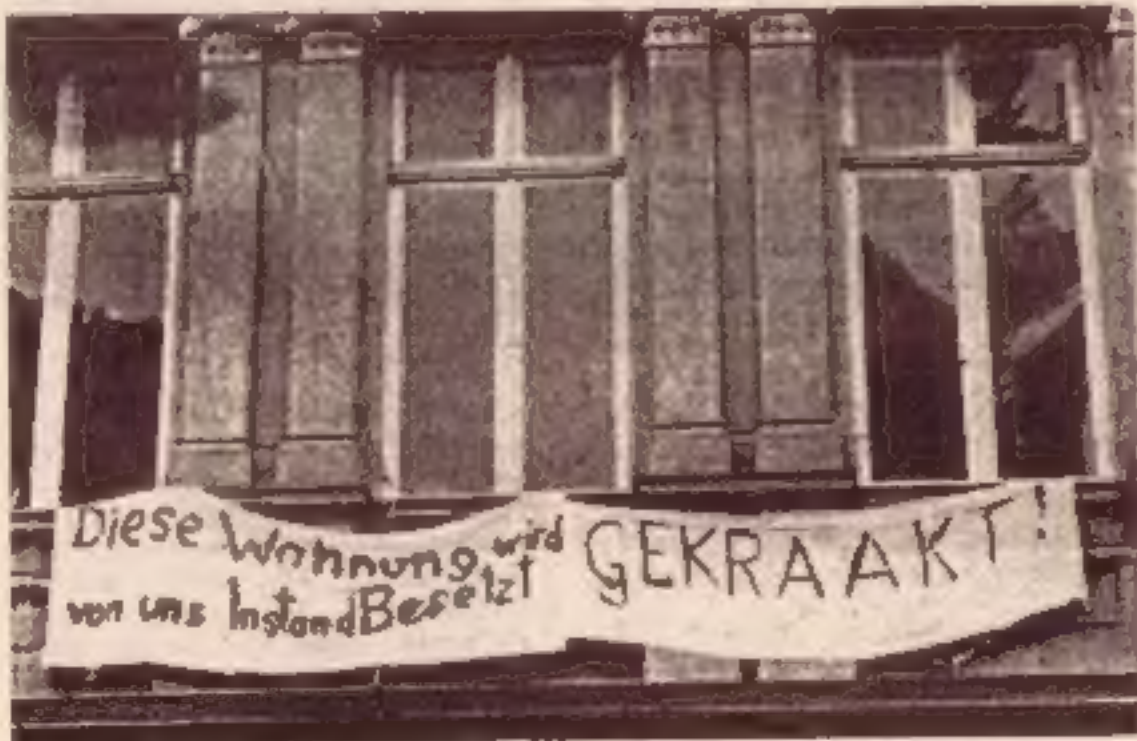 Diese Wohnung wird
von uns InstandBesetzt
GEKRAAKT!